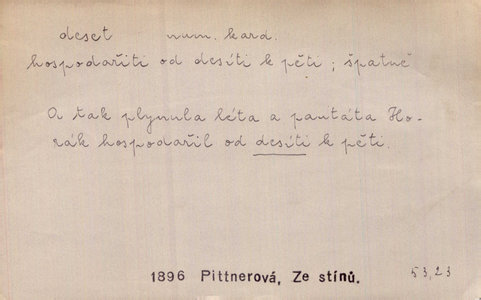 deset num. kard.
hospodařiti od desíti k pěti ; špatně
A tak plynula léta a pantáta Ho-
rák hospodařil od desíti k pěti.
1896 Pittnerová, Ze stínů.
53,23